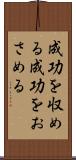 成功を収め
る成功をお
さめる